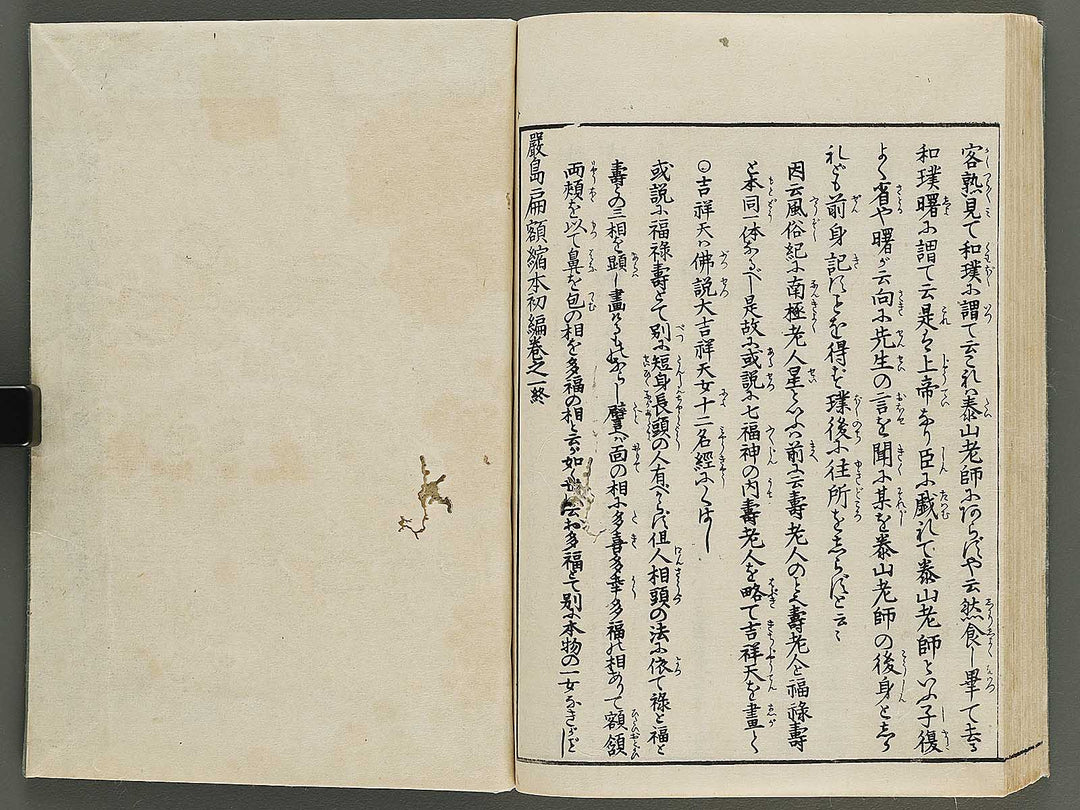 客熟見て和璞に謂て云これは泰山老師にあらずや云然食し畢て去る
和璞曙に謂て云是は上帝なり臣に戯れて泰山老師といふ子復
よく省や曙が云向に先生の言を聞に某を泰山老師の後身と云る
れども前身記ことを得ず璞後に往所をしらずと云々
因云風俗紀に南極老人星といふは前に云壽老人のこと壽老人と福祿壽
と本同一体なるべし是故に或説に七福神の内壽老人を略て吉祥天を畫く
○吉祥天は佛説大吉祥天女十二名經にくはし
或説に福祿壽とて別に短身長頭の人有べからず但人相頭の法に依て祿と福と
壽との三相を顕し畫けるものならし譬は面の相に多喜多幸多福の相ありて額頷
両頬を以て鼻を包の相を多福の相と云が如く お多福とて別に本物の一女なきがごとし
嚴島扁額縮本初編卷之一終